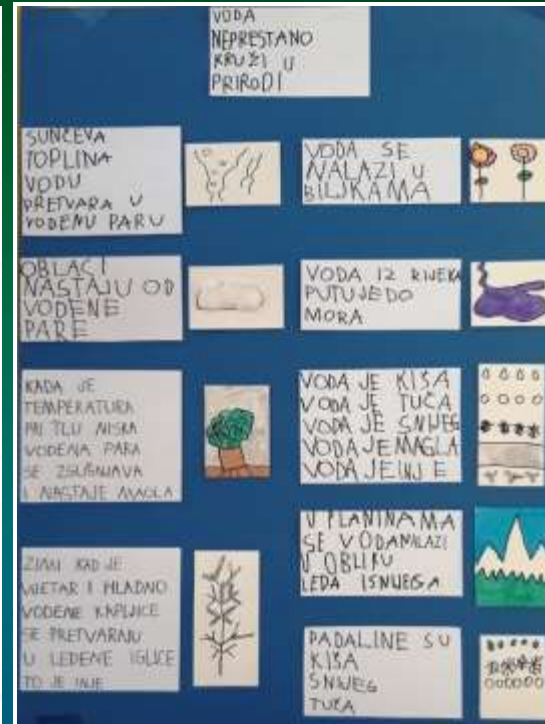 VODA
NEPRESTANO
KRUŽI U
PRIRODI
SUNČEVA
TOPLINA
VODU
PRETVARA U
VODENU PARU
OBLACI
NASTAJU OD
VODENE
PARE
KADA JE
TEMPERATURA
PRI TLU NISKA
VODENA PARA
SE ZGUŠNJAVA
I NASTAJE MAGLA
ZIMI KAD JE
VJETAR I HLADNO
VODENE KAPLJICE
SE PRETVARAJU
U LEDENE IGLICE
TO JE INJE
VODA SE
NALAZI U
BILJKAMA
VODA IZ RIJEKA
PUTUJE DO
MORA
VODA JE KIŠA
VODA JE TUČA
VODA JE SNIJEG
VODA JE MAGLA
VODA JE INJE
U PLANINAMA
SE VODA NALAZI
U OBLIKU
LEDA I SNIJEGA
PADALINE SU
KIŠA
SNIJEG
TUČA